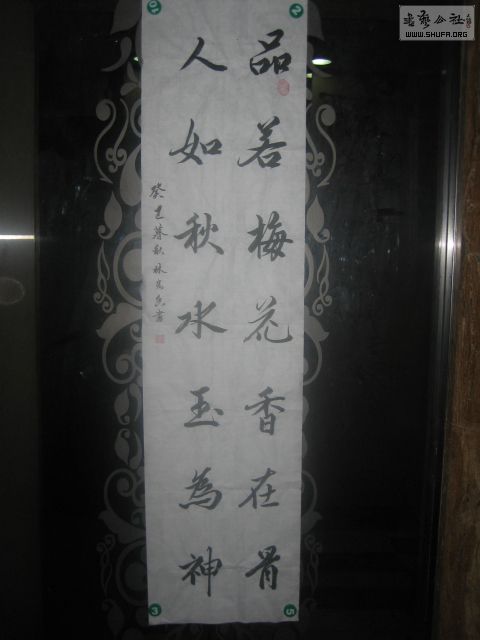 品若梅花香在骨
人如秋水玉為神
癸巳暮秋林
書
書藝公社
WWW.SHUFA.ORG
5
3